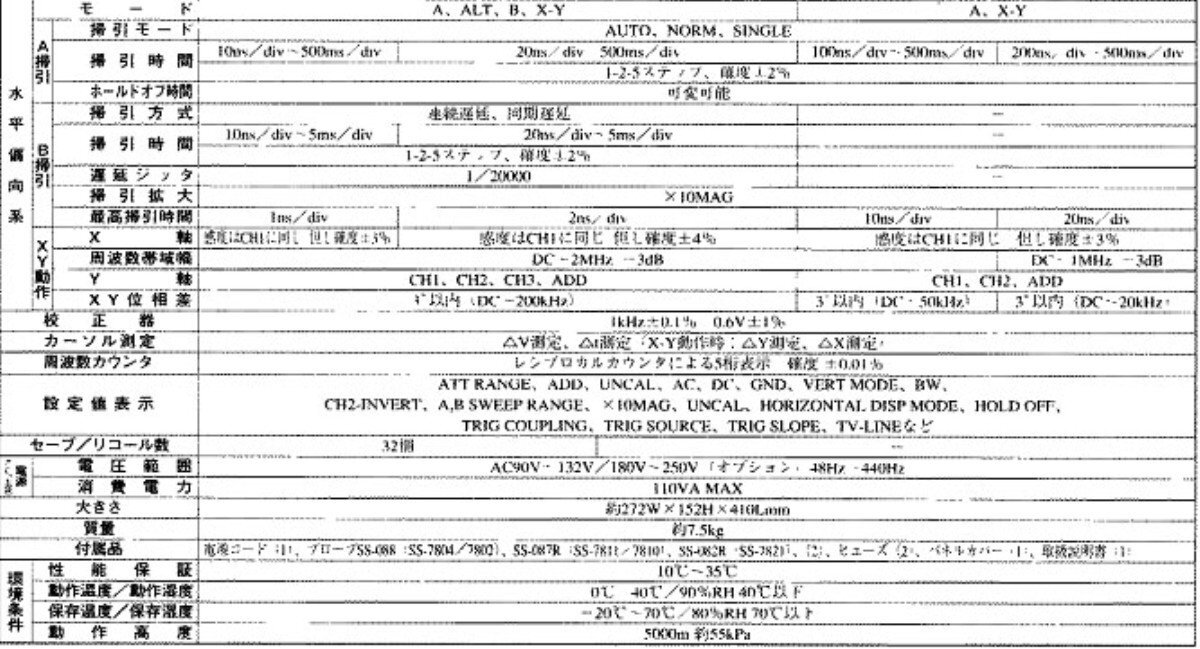 モード A、ALT、B、X-Y A、X-Y
水平偏向系
A掃引
掃引モード AUTO、NORM、SINGLE
掃引時間 10ns/div~500ms/div 20ns/div 500ms/div 100ns/div~500ms/div 200ns/div~500ms/div
1-2-5ステップ、確度±2%
ホールドオフ時間 可変可能
B掃引
掃引方式 連続遅延、同期遅延 —
掃引時間 10ns/div~5ms/div 20ns/div~5ms/div —
1-2-5ステップ、確度±2% —
遅延ジッタ 1/20000 —
掃引拡大 ×10MAG
最高掃引時間 1ns/div 2ns/div 10ns/div 20ns/div
XY動作
X軸 感度はCH1に同じ 但し確度±5% 感度はCH1に同じ 但し確度±4% 感度はCH1に同じ 但し確度±3%
周波数帯域幅 DC~2MHz −3dB DC~1MHz −3dB
Y軸 CH1、CH2、CH3、ADD CH1、CH2、ADD
XY位相差 3°以内(DC~200kHz) 3°以内(DC~50kHz) 3°以内(DC~20kHz)
校正器 1kHz±0.1% 0.6V±1%
カーソル測定 △V測定、△t測定(X-Y動作時:△Y測定、△X測定)
周波数カウンタ レシプロカルカウンタによる5桁表示 確度±0.01%
設定値表示 ATT RANGE、ADD、UNCAL、AC、DC、GND、VERT MODE、BW、
CH2-INVERT、A,B SWEEP RANGE、×10MAG、UNCAL、HORIZONTAL DISP MODE、HOLD OFF、
TRIG COUPLING、TRIG SOURCE、TRIG SLOPE、TV-LINEなど
セーブ/リコール数 32個 —
電源
電圧範囲 AC90V~132V/180V~250V(オプション)48Hz~440Hz
消費電力 110VA MAX
大きさ 約272W×152H×410Lmm
質量 約7.5kg
付属品 電源コード(1)、プローブSS-088(SS-7804/7802)、SS-087R(SS-7811/7810)、SS-082R(SS-7821)、(2)、ヒューズ(2)、パネルカバー(1)、取扱説明書(1)
環境条件
性能保証 10℃~35℃
動作温度/動作湿度 0℃~40℃/90%RH 40℃以下
保存温度/保存湿度 −20℃~70℃/80%RH 70℃以下
動作高度 5000m 約55kPa